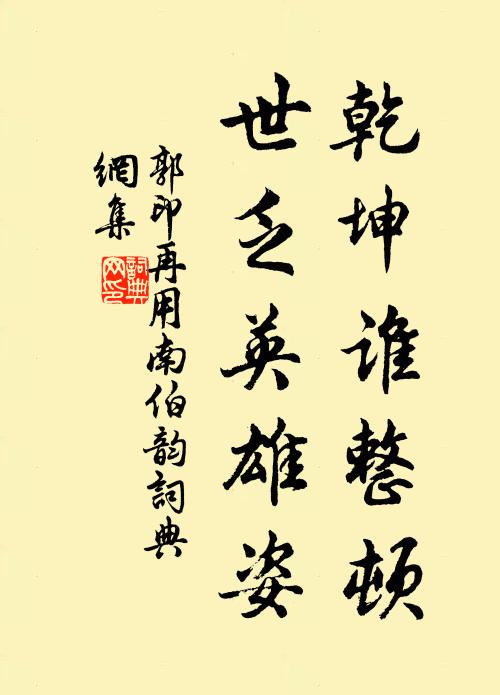 乾坤谁整顿
世乏英雄姿
郭印再用南伯韵詞典
網集
詞典
网印